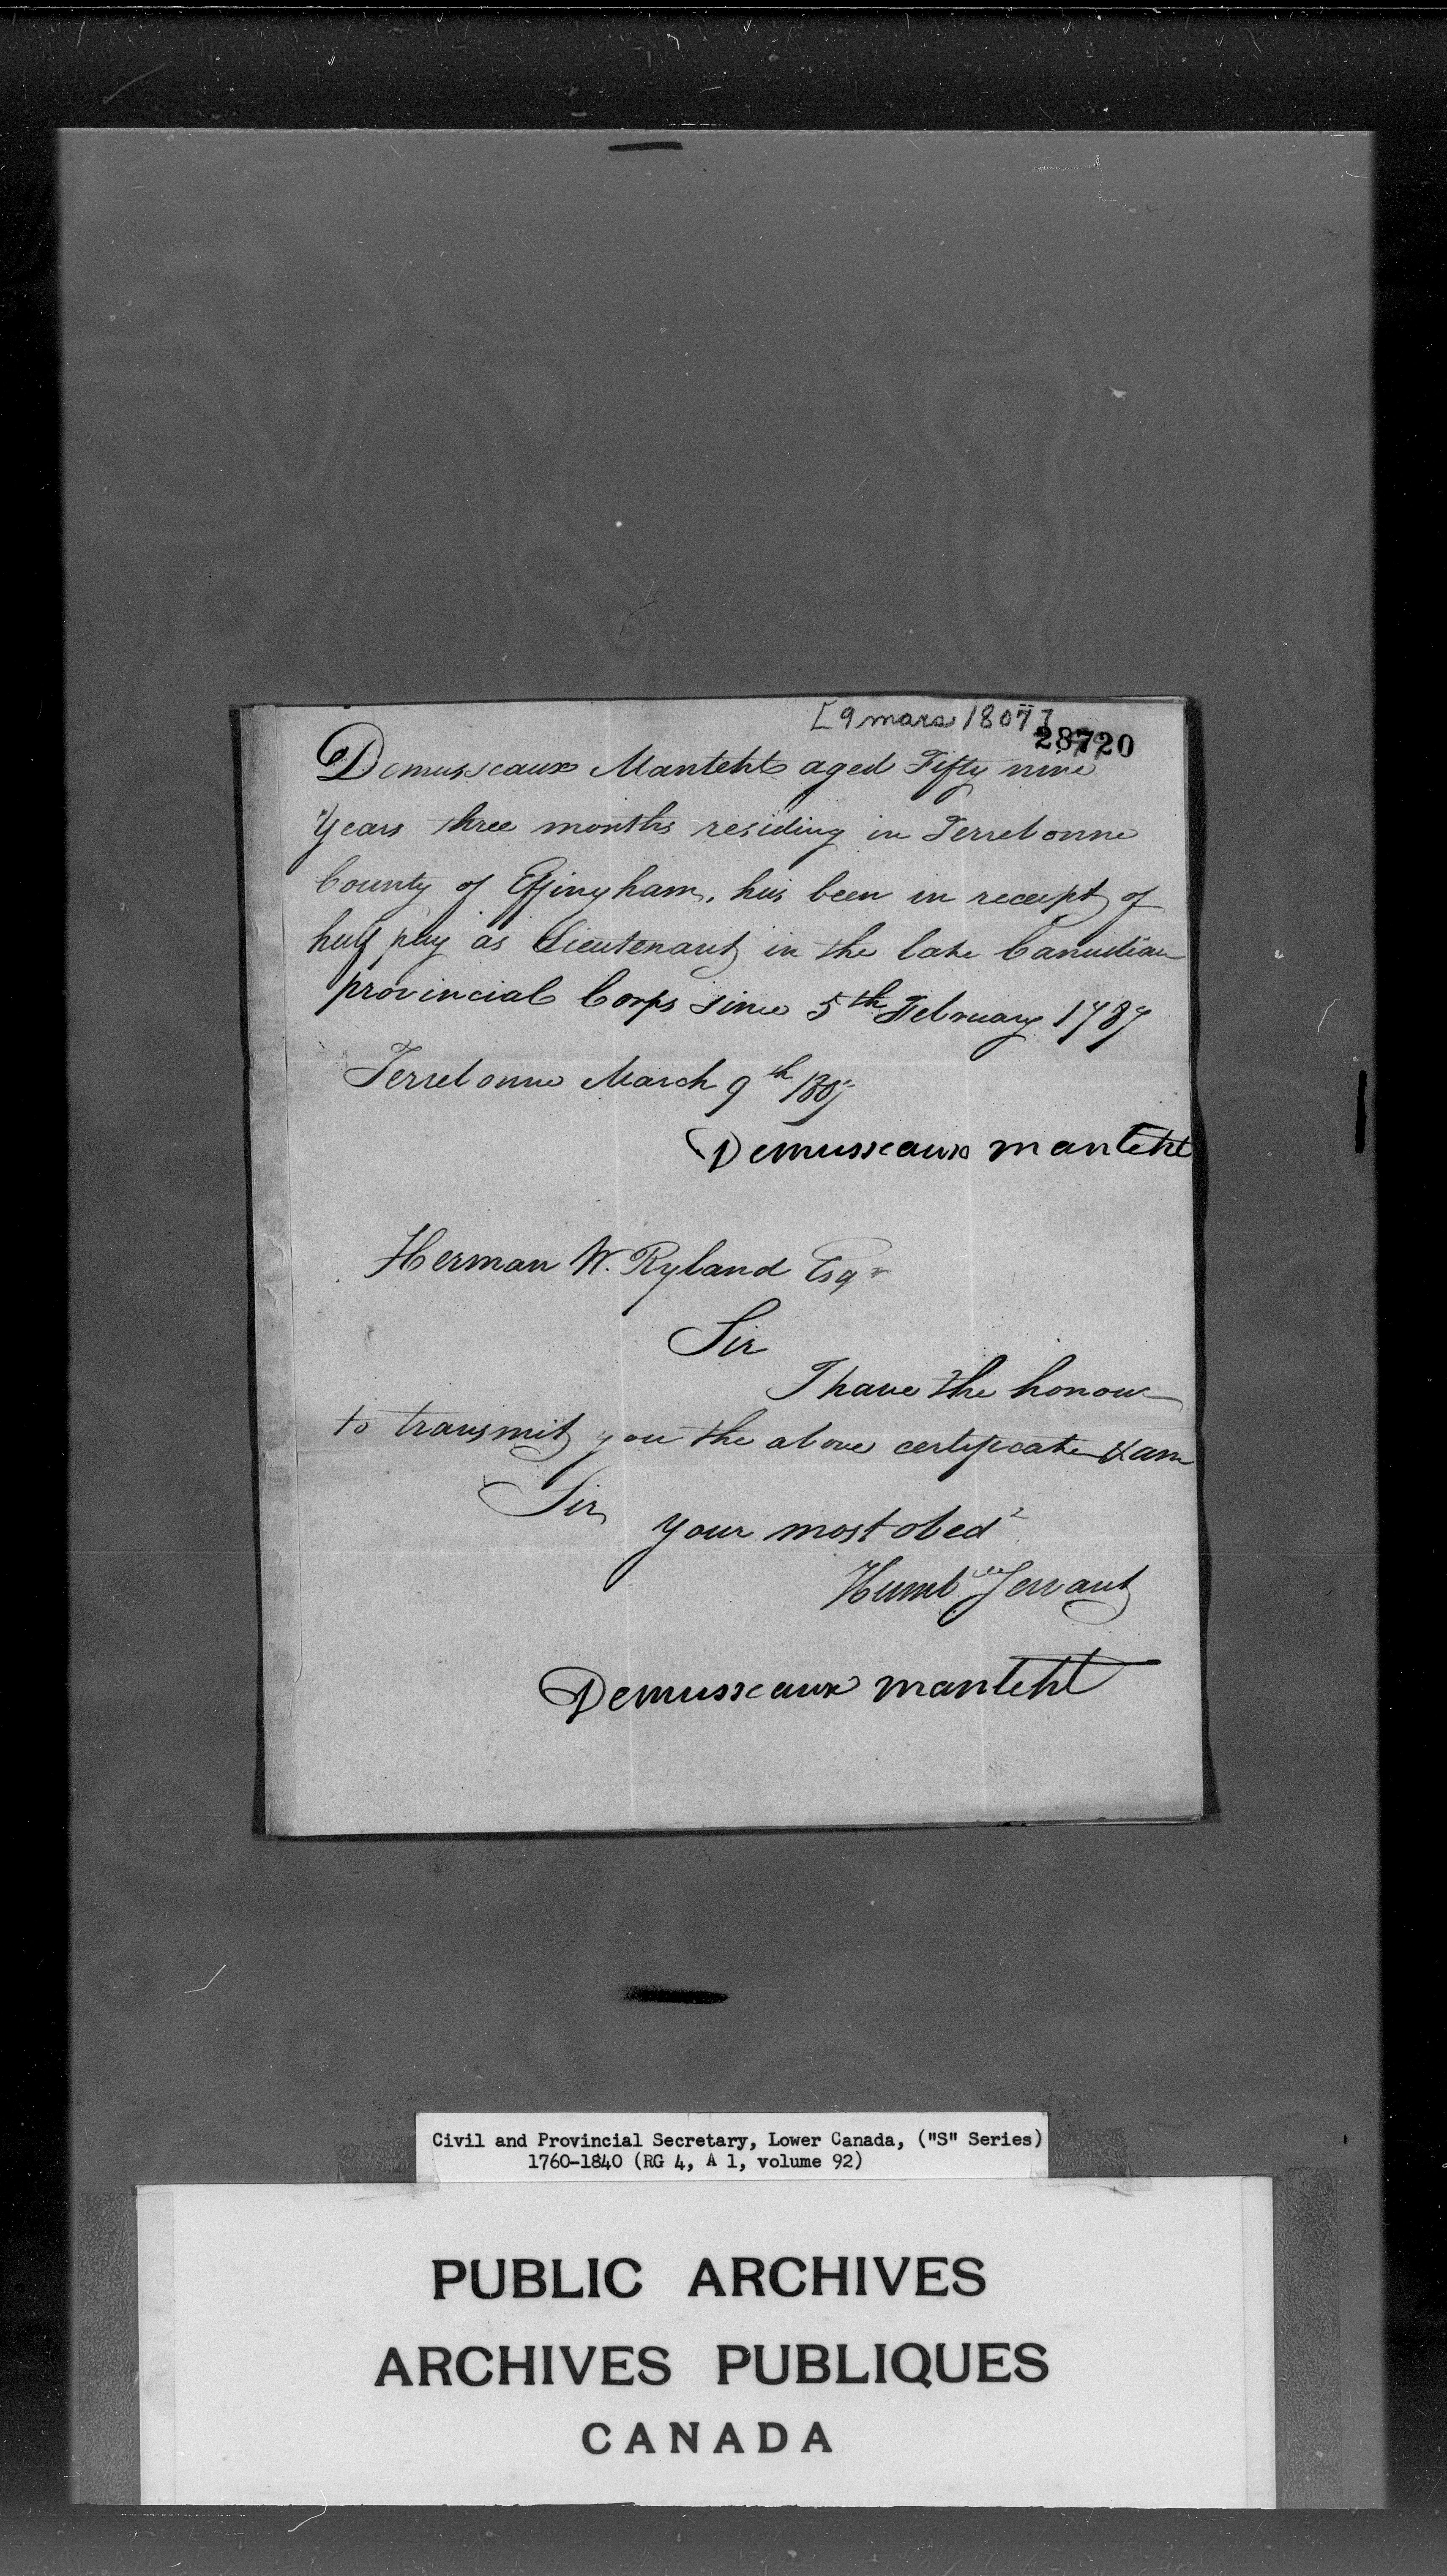 [9 mars 1807]
28720
Demusseaux Manteht aged Fifty nine
Years three months residing in Terrebonne
County of Effingham, has been in receipt of
half pay as Lieutenant in the late Canadian
provincial Corps since 5th February 1787
Terrebonne March 9th 1807
Demusseaux manteht
Herman W. Ryland Esqr
Sir
I have the honour
to transmit you the above certificate & am
Sir
your most obedt
Humble Servant
Demusseaux manteht
Civil and Provincial Secretary, Lower Canada, ("S" Series)
1760-1840 (RG 4, A 1, volume 92)
PUBLIC ARCHIVES
ARCHIVES PUBLIQUES
CANADA